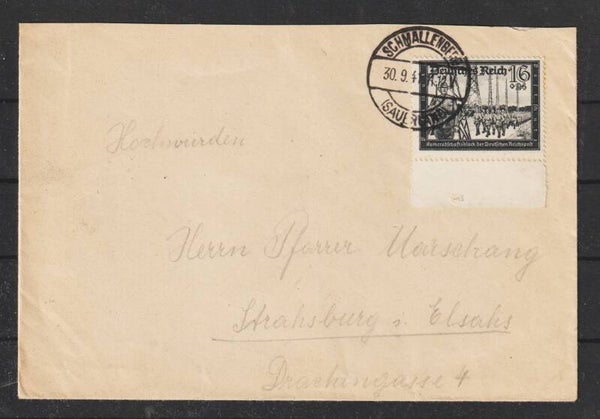 SCHMALLENBERG
30.9.4
(SAUERLAND)
Deutsches Reich 16
Kameradschaftsblock der Deutschen Reichspost
Hochwürden
Herrn Pfarrer Marschang
Strahsburg i. Elsahs
Drachengasse 4